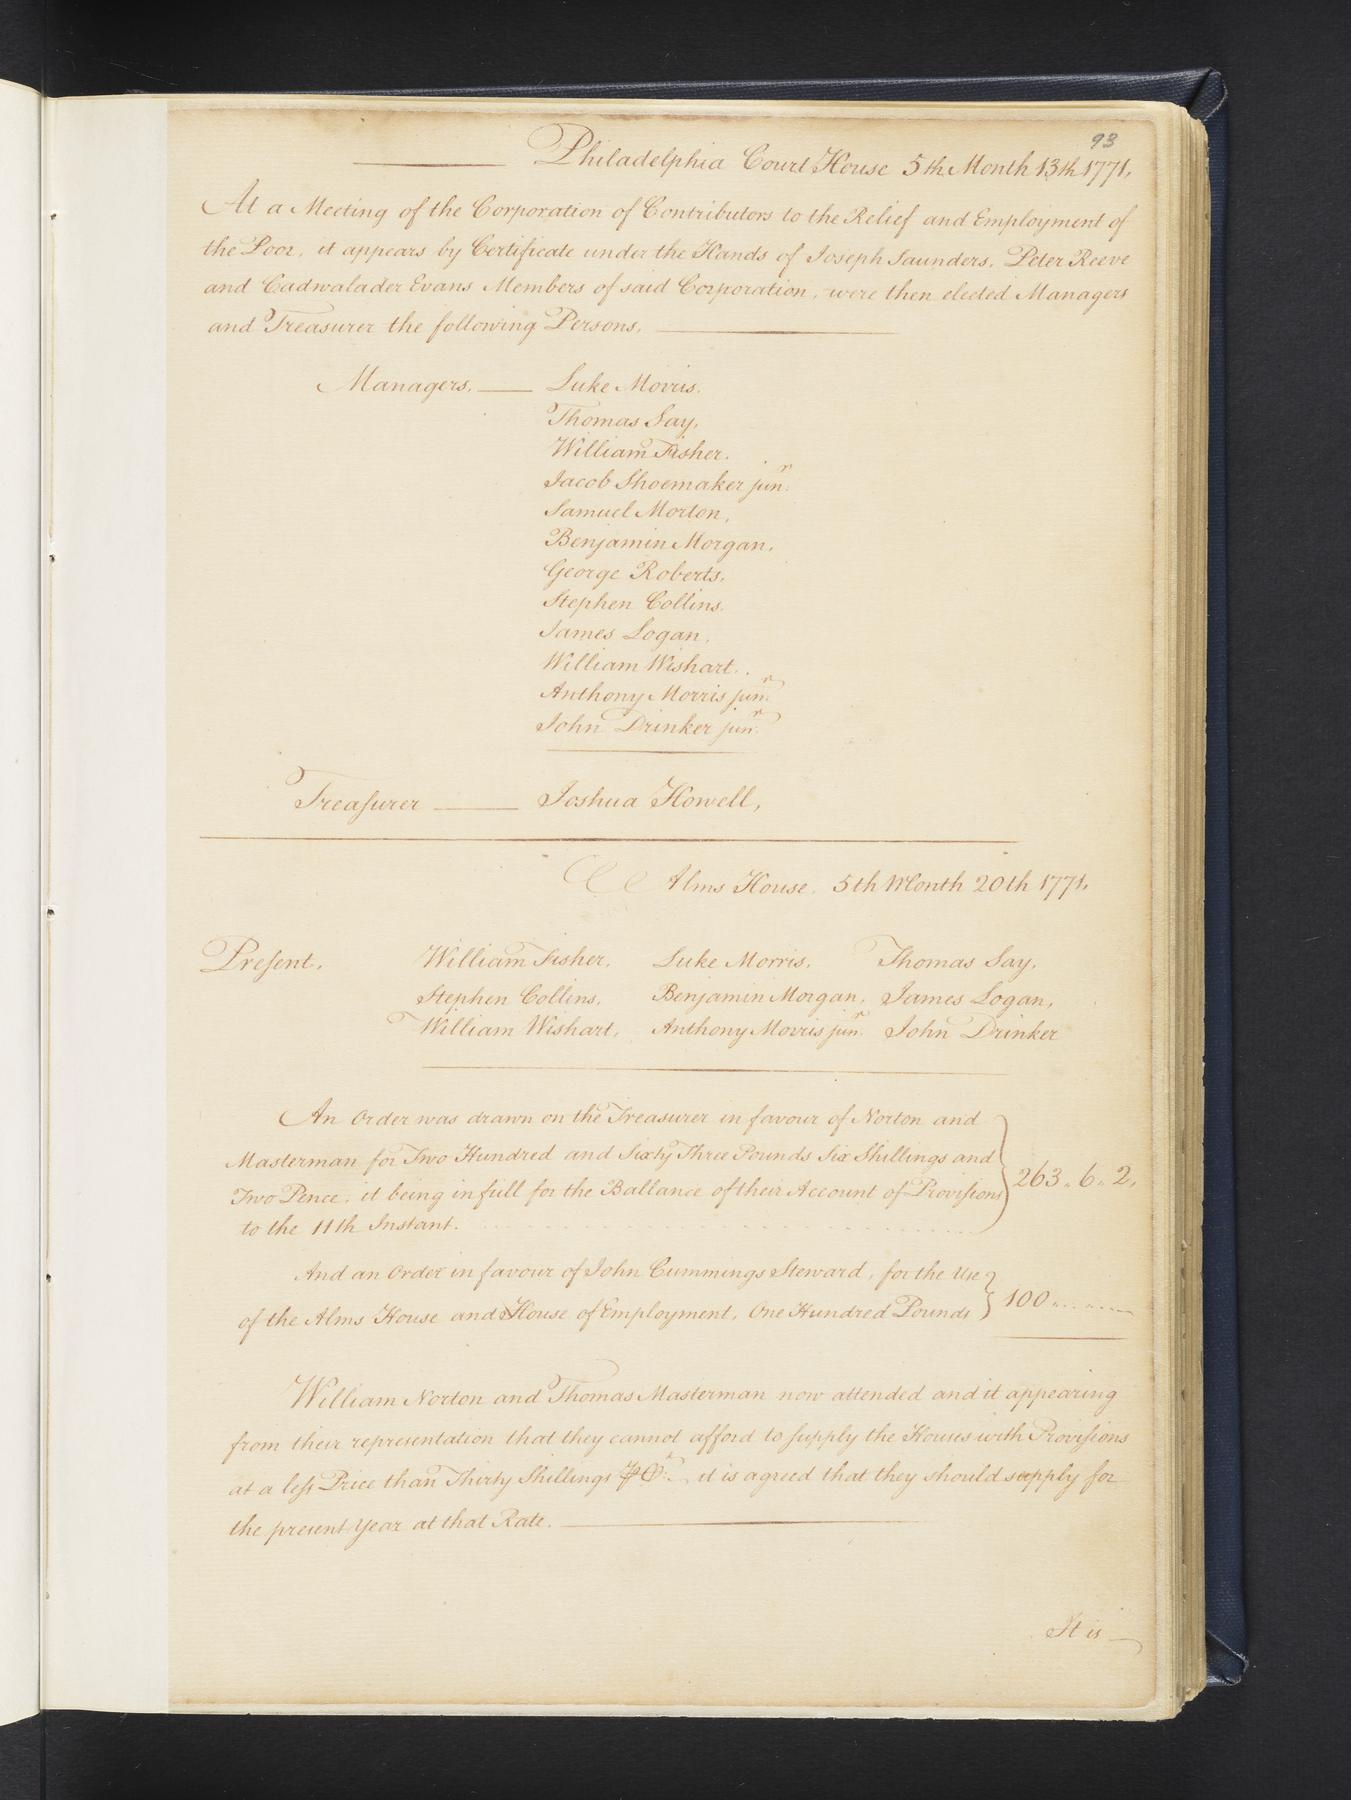 93
Philadelphia Court House 5th Month 13th 1771.
At a Meeting of the Corporation of Contributors to the Relief and Employment of
the Poor, it appears by Certificate under the Hands of Joseph Saunders, Peter Reeve
and Cadwalader Evans Members of said Corporation, were then elected Managers
and Treasurer the following Persons,
Managers. Luke Morris.
Thomas Say,
William Fisher.
Jacob Shoemaker junr.
Samuel Morton,
Benjamin Morgan,
George Roberts,
Stephen Collins.
James Logan,
William Wishart.
Anthony Morris junr.
John Drinker junr.
Treasurer Joshua Howell,
Alms House. 5th Month 20th 1771.
Present. William Fisher. Luke Morris. Thomas Say.
Stephen Collins, Benjamin Morgan, James Logan,
William Wishart, Anthony Morris junr. John Drinker
An Order was drawn on the Treasurer in favour of Norton and
Masterman for Two Hundred and Sixty Three Pounds Six Shillings and
Two Pence, it being in full for the Ballance of their Account of Provisions 263.. 6.. 2,
to the 11th Instant.
And an Order in favour of John Cummings Steward, for the Use
of the Alms House and House of Employment, One Hundred Pounds 100
William Norton and Thomas Masterman now attended and it appearing
from their representation that they cannot afford to supply the Houses with Provisions
at a less Price than Thirty Shillings ⅌ it is agreed that they should supply for
the present Year at that Rate.
It is